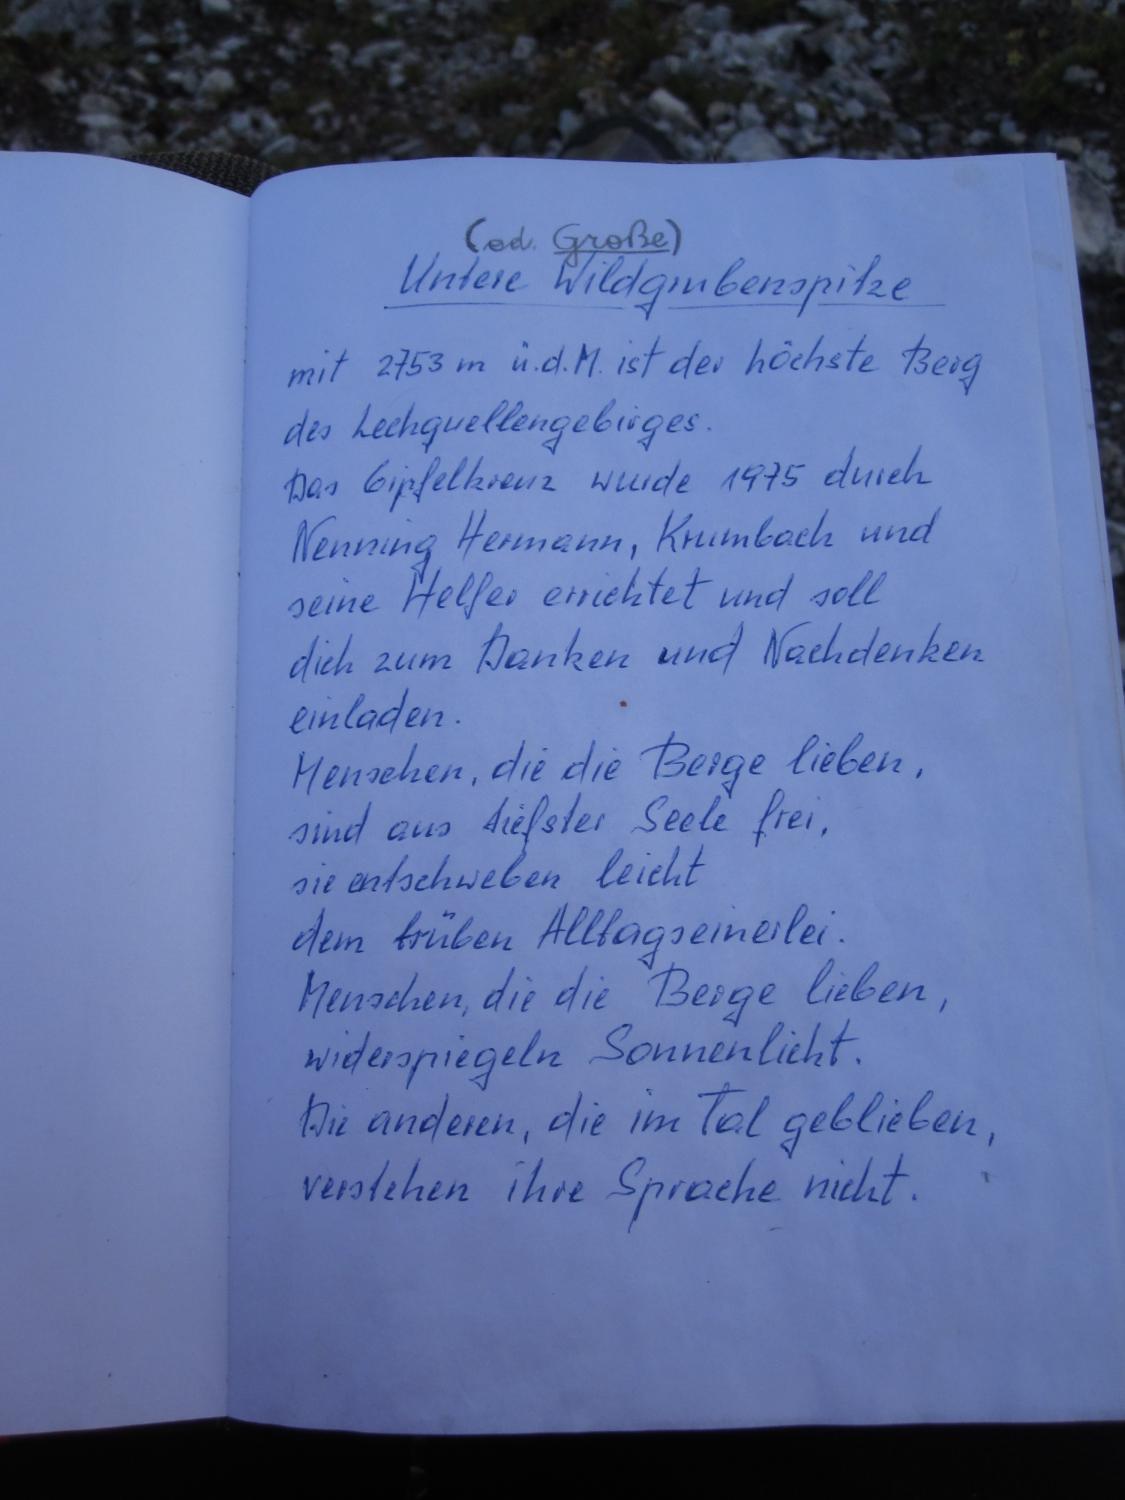 (od. Große)
Untere Wildgrubenspitze
mit 2753 m ü.d.M. ist der höchste Berg
des Lechquellengebirges.
Das Gipfelkreuz wurde 1975 durch
Nenning Hermann, Krumbach und
seine Helfer errichtet und soll
dich zum Danken und Nachdenken
einladen.
Menschen, die die Berge lieben,
sind aus tiefster Seele frei,
sie entschweben leicht
dem trüben Alltagseinerlei.
Menschen, die die Berge lieben,
widerspiegeln Sonnenlicht.
Die anderen, die im Tal geblieben,
verstehen ihre Sprache nicht.